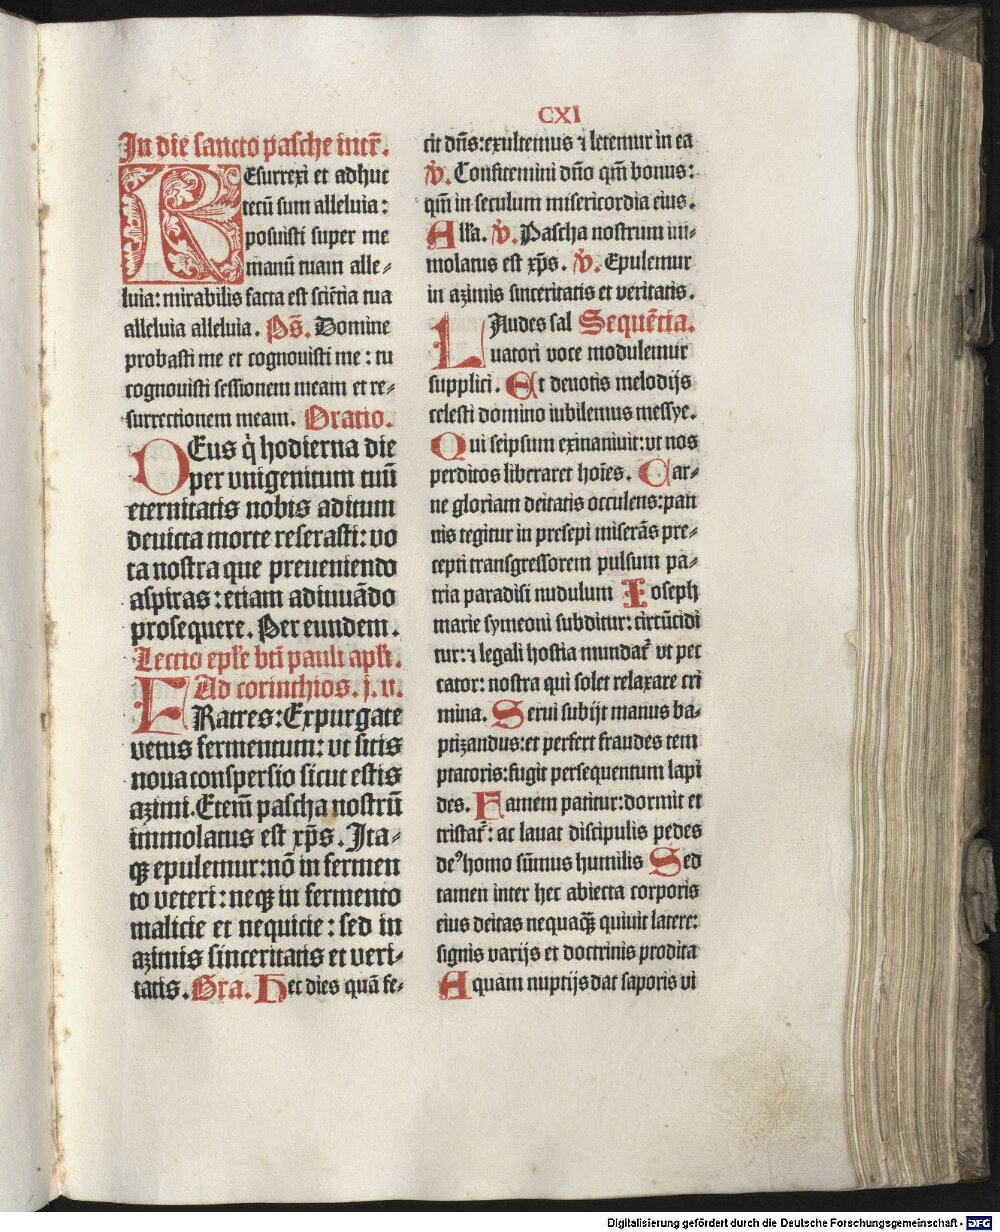 CXI
In die sancto pasche intr̄.
REsurrexi et adhuc
tecū sum alleluia:
posuisti super me
manū tuam alle⸗
luia: mirabilis facta est sciētia tua
alleluia alleluia. Ps̄. Domine
probasti me et cognouisti me: tu
cognouisti sessionem meam et re⸗
surrectionem meam. Oratio.
DEus q̇ hodierna die
per vnigenitum tuū
eternitatis nobis aditum
deuicta morte reserasti: vo
ta nostra que preueniendo
aspiras: etiam adiuuādo
prosequere. Per eundem.
Lectio epl̄e btī pauli apl̄i.
Ad corinchios. j. v.
FRatres: Expurgate
vetus fermentum: vt sitis
noua conspersio sicut estis
azimi. Etem̄ pascha nostrū
immolatus est xp̄s. Ita⸗
qꝫ epulemur: nō in fermen
to veteri: neqꝫ in fermento
malicie et nequicie: sed in
azimis sinceritatis et veri⸗
tatis. Gra. Hec dies quā fe⸗
cit dn̄s: exultemus ⁊ letemur in ea
v̇. Confitemini dn̄o qm̄ bonus:
qm̄ in seculum misericordia eius.
All'a. v̇. Pascha nostrum im⸗
molatus est xp̄s. v̇. Epulemur
in azimis sinceritatis et veritatis.
LAudes sal Sequētia.
uatori voce modulemur
supplici. Et deuotis melodijs
celesti domino iubilemus messye.
Qui seipsum exinaniuit: vt nos
perditos liberaret hoīes. Car⸗
ne gloriam deitatis occulens: pan
nis tegitur in presepi miserās pre⸗
cepti transgressorem pulsum pa⸗
tria paradisi nudulum Ioseph
marie symeoni subditur: circūcidi
tur: ⁊ legali hostia mundat᷑ vt pec
cator: nostra qui solet relaxare cri
mina. Serui subijt manus ba⸗
ptizandus: et perfert fraudes tem
ptatoris: fugit persequentum lapi
des. Famem patitur: dormit et
tristat᷑: ac lauat discipulis pedes
deꝰ homo sūmus humilis Sed
tamen inter hec abiecta corporis
eius deitas nequaqꝫ̄ quiuit latere:
signis varijs et doctrinis prodita
Aquam nuptijs dat saporis vi
Digitalisierung gefördert durch die Deutsche Forschungsgemeinschaft - DFG